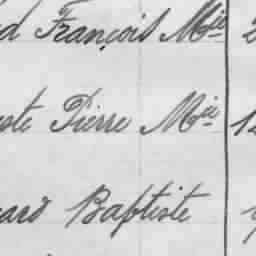 d François Mie 2
ste Pierre Mie 12
ard Baptiste